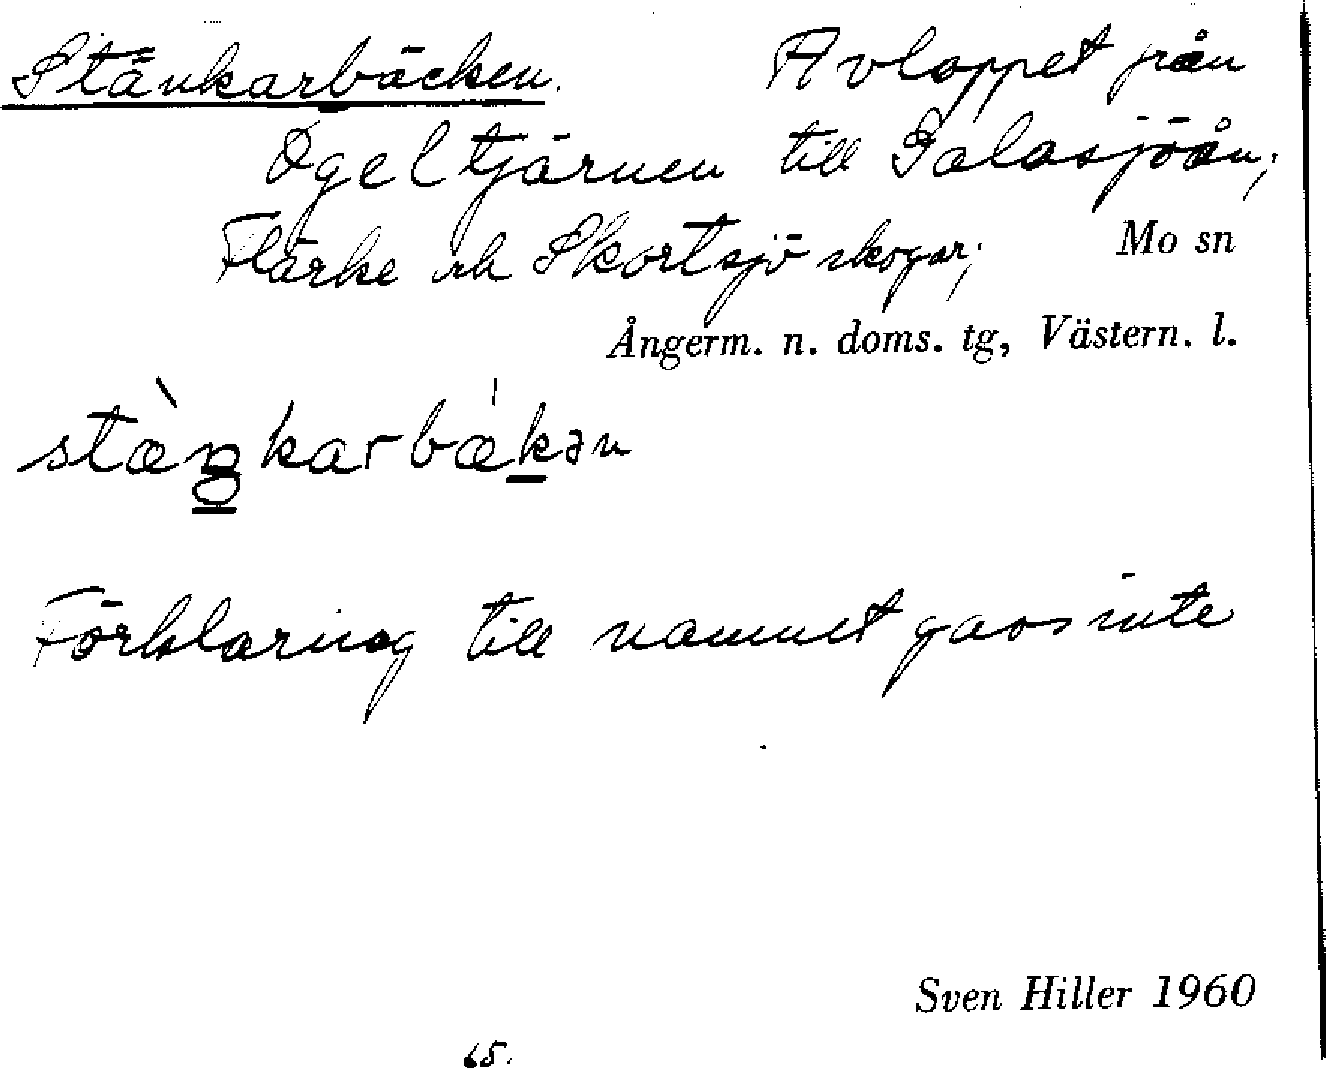 Stänkarbäcken. Avloppet från
Ögeltjärnen till Galasjöån;
Flärke och Skortsjö skogar; Mo sn
Ångerm. n. doms. tg, Västern. l.
stæ̀ŋkarbæ̀kən
Förklaring till namnet gavs inte
Sven Hiller 1960
65.